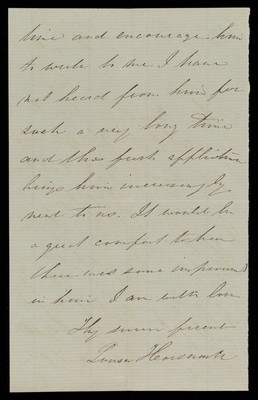 time and encourage him
to write to me I have
not heard from him for
such a very long time
and this fresh affliction
brings him increasingly
near to us. It would be
a great comfort to hear
there was some improvemt
in him I am with love
Thy sincere
Louisa